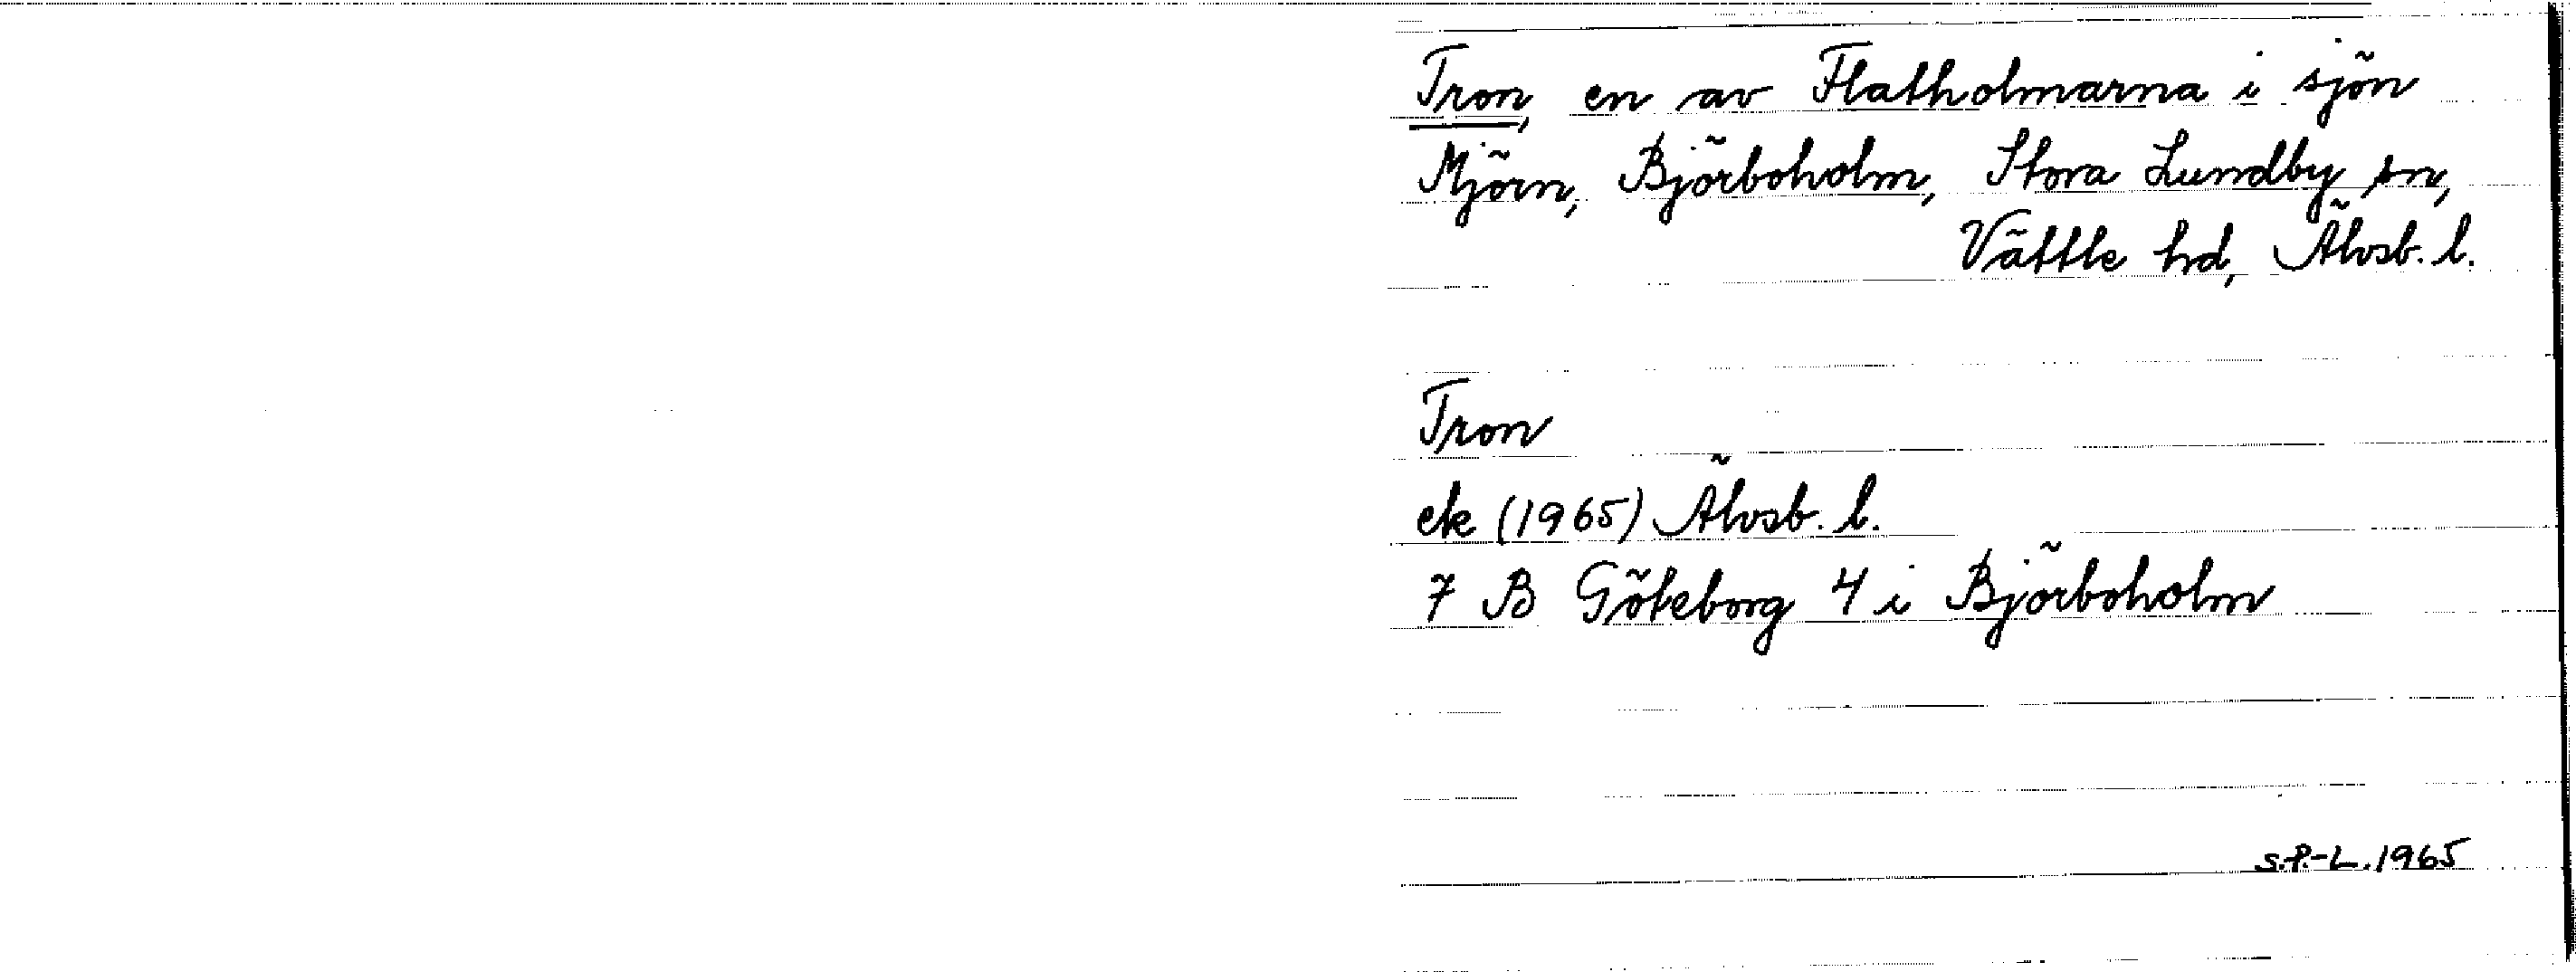 Tron, en av Flatholmarna i sjön
Mjörn, Björboholm, Stora Lundby sn,
Vättle hd, Älvsb. l.
Tron
ek (1965) Älvsb. l.
7 B Göteborg 4 i Björboholm
S.P.-L. 1965